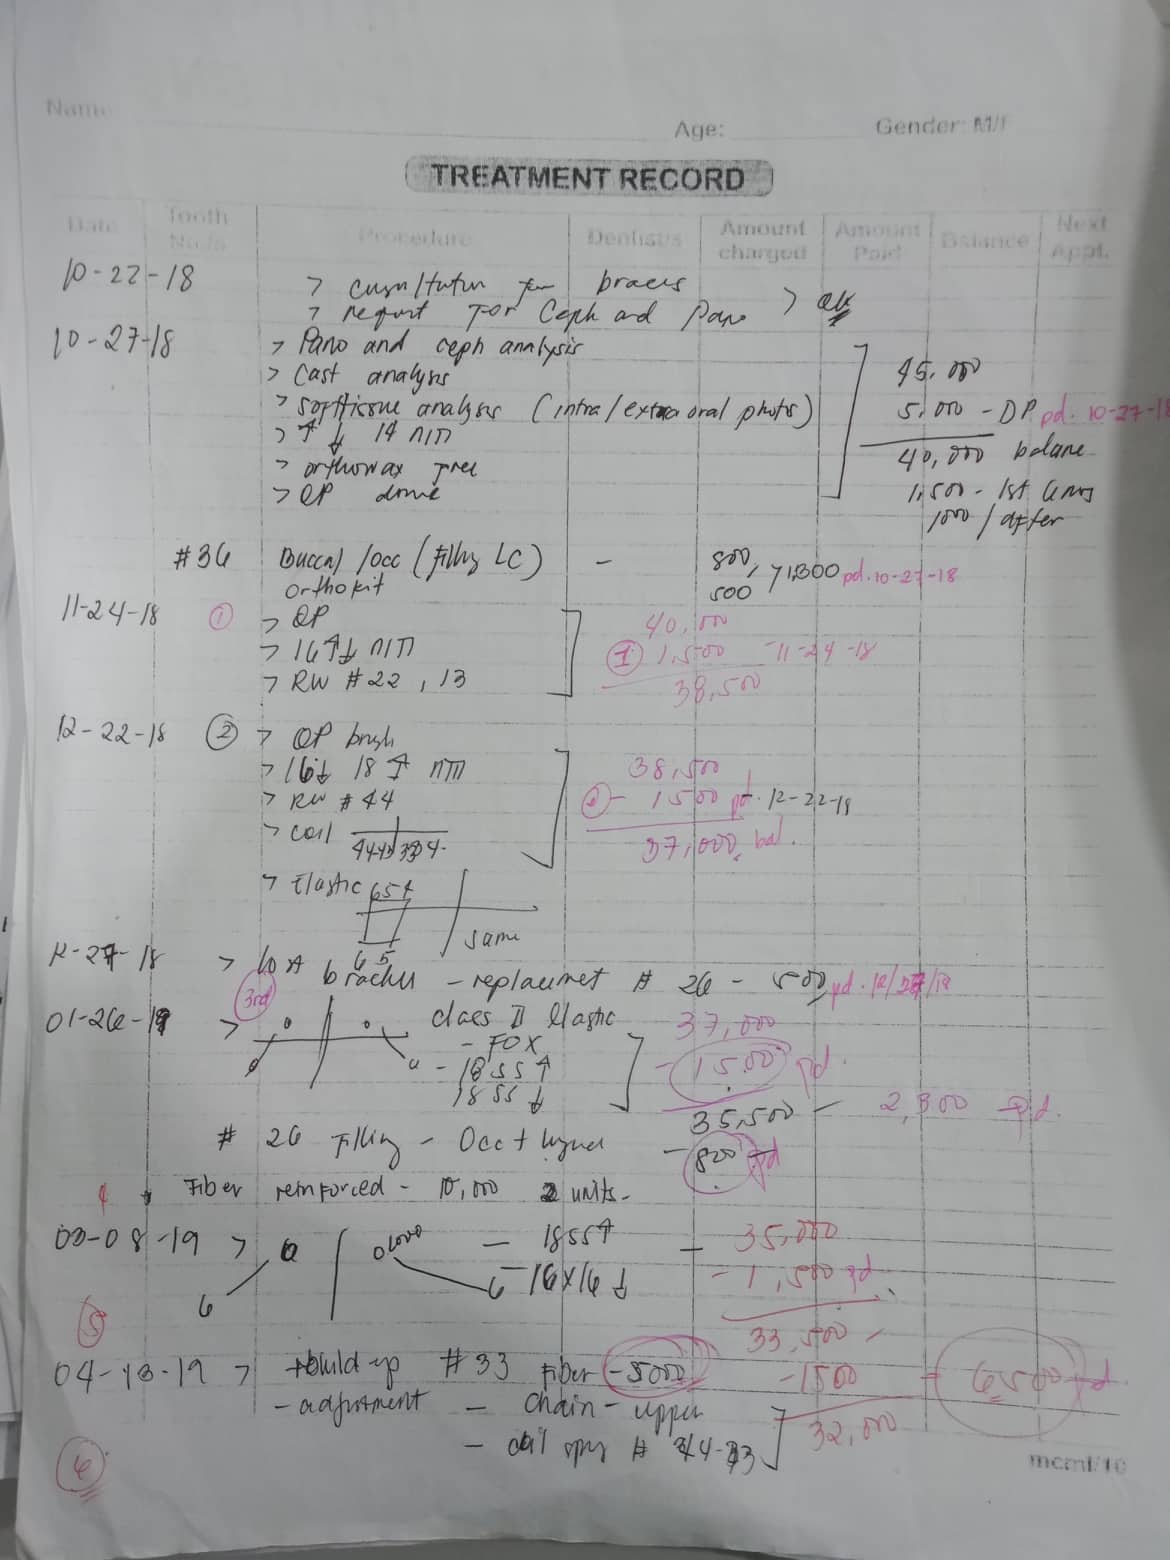 Name
Age:
Gender: M/F
TREATMENT RECORD
Date
Tooth No./s
Procedure
Dentist/s
Amount charged
Amount Paid
Balance
Next Appt.
10-22-18 > braces
> request For Ceph and Pano >
10-27-18 > Pano and ceph analysis
> Cast analysis 45,000
> softtissue analysis (intra/extra oral photos) 5,000 - DP pd. 10-27-18
> ↑↓ 14 niti 40,000 balane
> orthowax free 1,500 - 1st
> OP 1000 / after
#36 Buccal /occ (Filling LC) - 800, 500 > 1,300 pd. 10-27-18
orthokit
11-24-18 ① > OP 40,000
> 16 ↑↓ niti ① 1,500 - 11-24-18
> RW #22, 13 38,500
12-22-18 ② > OP brush
> 16↓ 18↑ niti 38,500
> RW #44 ② - 1500 pd. 12-22-18
> coil 37,000 bal.
> Elastic 654
65 same
12-27-18 > lost bracket - replacemet # 26 - 500 pd. 12/27/18
3rd
01-26-19 > class II Elastic 37,000
- FOX - 1500 pd.
- 18 SS ↑
18 SS ↓ 35,500 - 2,300 pd.
# 26 Filling - Occ + - 800 pd
4 Fiber reinforced - 10,000 2 units -
03-08-19 > 6 - 18 SS ↑ - 35,000
6 6 - 16x16 ↓ - 1,500 pd.
5 33,500
04-13-19 > build-up #33 Fiber - 5000 - 1500 - 6500 pd
- adjustment - chain - upper 32,000
- coil # 34-33
6
mcml/10